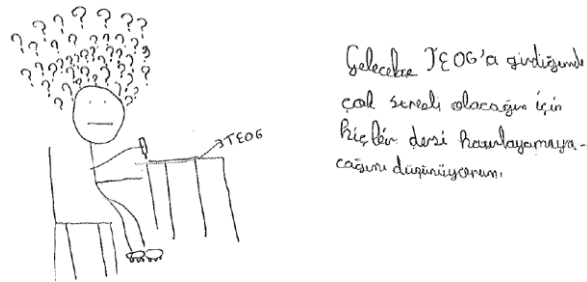 TEOG
Gelecekte TEOG'a girdiğimde
çok stresli olacağım için
hiçbir dersi hatırlayamaya-
cağımı düşünüyorum.